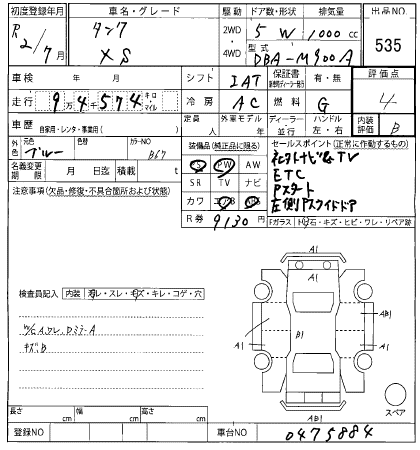 初度登録年月 車名・グレード 駆動 ドア数・形状 排気量 出品NO
R2/7月 タンク XS 2WD 4WD 5 W 1000 cc 535
型式 DBA-M900A
車検 年 月 シフト IAT 保証書 有・無 評価点
走行 9万4千574 キロ・マイル 冷房 AC 燃料 G 4
車歴 自家用・レンタ・事業用( ) 定員 人 外車モデル 年 ディーラー 並行 ハンドル 左・右 内装評価 B
外色 元色 ブルー 色替 カラーNO B67 装備品(純正品に限る) セールスポイント(正常に作動するもの)
名義変更期限 月 日迄 積載 t PS PW AW
注意事項(欠品・修復・不具合箇所および状態) SR TV ナビ ETC
カワ エアB ABS 左側Pスライドドア
R券 9130 円 Fガラス トビ石・キズ・ヒビ・ワレ・リペア跡
検査員記入 内装 ヨゴレ・スレ・キズ・キレ・コゲ・穴
キズB
A1
A1
AB1
A1
B1
A1
AB1
スペア
長さ cm 幅 cm 高さ cm
登録NO 車台NO 0475884